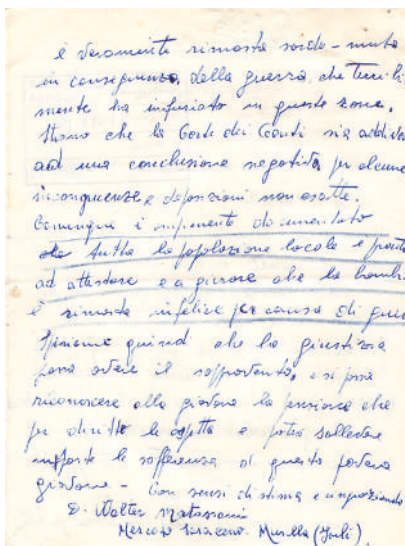 è veramente rimasta sorda-muta
in conseguenza della guerra che terribil
mente ha infuriato in queste zone.
Strano che la Corte dei Conti sia addive
ad una conclusione negativa per alcune
incongruenze e deposizioni non esatte.
Comunque è ampiamente documentato
che tutta la popolazione locale è pronta
ad attestare e a giurare che la bambi
è rimasta infelice per causa di guer
Speriamo quindi che la giustizia
possa avere il sopravvento, e si possa
riconoscere alla giovane la pensione che
per diritto le aspetta e potrà sollevare
la sofferenza di questa povera
giovane - Con sensi di stima e ringraziando
D. Walter
Mercato Saraceno. Musella (Forlì)